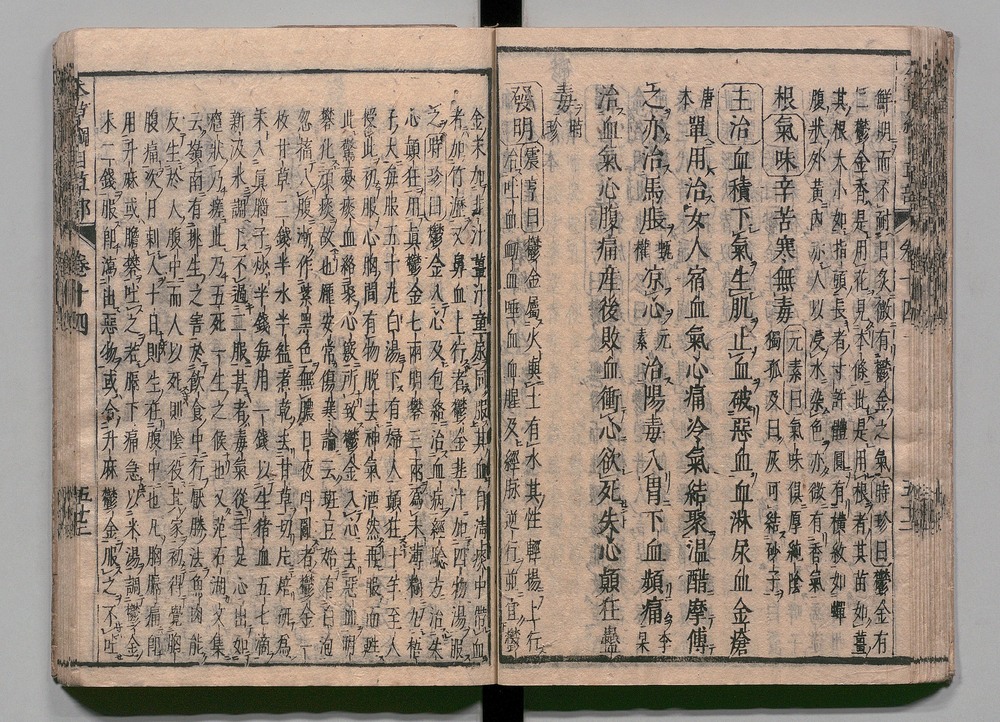 鮮明而不耐日炙微有鬱金之氣時珍曰鬱金有
二鬱金香是用花見本條此是用根者其苗如薑
其根大小如指頭長者寸許體圓有橫紋如蟬
腹狀外黃內赤人以浸水染色亦微有香氣
根氣味辛苦寒無毒元素曰氣味俱厚純陰
獨孤及曰灰可結砂子
主治血積下氣生肌止血破惡血血淋尿血金瘡
唐本單用治女人宿血氣心痛冷氣結聚溫醋摩傅
之亦治馬脹甄權涼心元素治陽毒入胃下血頻痛李杲
治血氣心腹痛產後敗血衝心欲死失心顛狂蠱
毒時珍
發明震亨曰鬱金屬火與土有水其性輕揚上行
治吐血衄血唾血血腥及經脉逆行並宜鬱
金末加韭汁薑汁童尿同服其血自清痰中帶血
者加竹瀝又鼻血上行者鬱金韭汁加四物湯服
之時珍曰鬱金入心及包絡治血病經驗方治失
心顛狂用真鬱金七兩明礬三兩為末薄糊丸梧
子大每服五十丸白湯下有婦人顛狂十年至人
授此初服心胸間有物脫去神氣洒然再服而甦
此驚憂痰血絡聚心竅所致鬱金入心去惡血明
礬化頑痰故也龐安常傷寒論云斑豆始有白泡
忽搐入腹漸作紫黑色無膿日夜叫亂者鬱金一
枚甘草二錢半水半盌煮乾去甘草切片焙研為
末入真腦子炒半錢每用一錢以生猪血五七滴
新汲水調下不過二服甚者毒氣從手足心出如
癰狀乃瘥此乃五死一生之候也又范石湖文集
云嶺南有挑生之害於飲食中行厭勝法魚肉能
反生於人腹中而人以死則陰役其家初得覺胸
腹痛次日刺人十日則生在腹中也凡胸膈痛即
用升麻或膽礬吐之若膈下痛急以米湯調鬱金
末二錢服即瀉出惡物或合升麻鬱金服之不吐
本草綱目草部
卷十四
五十三